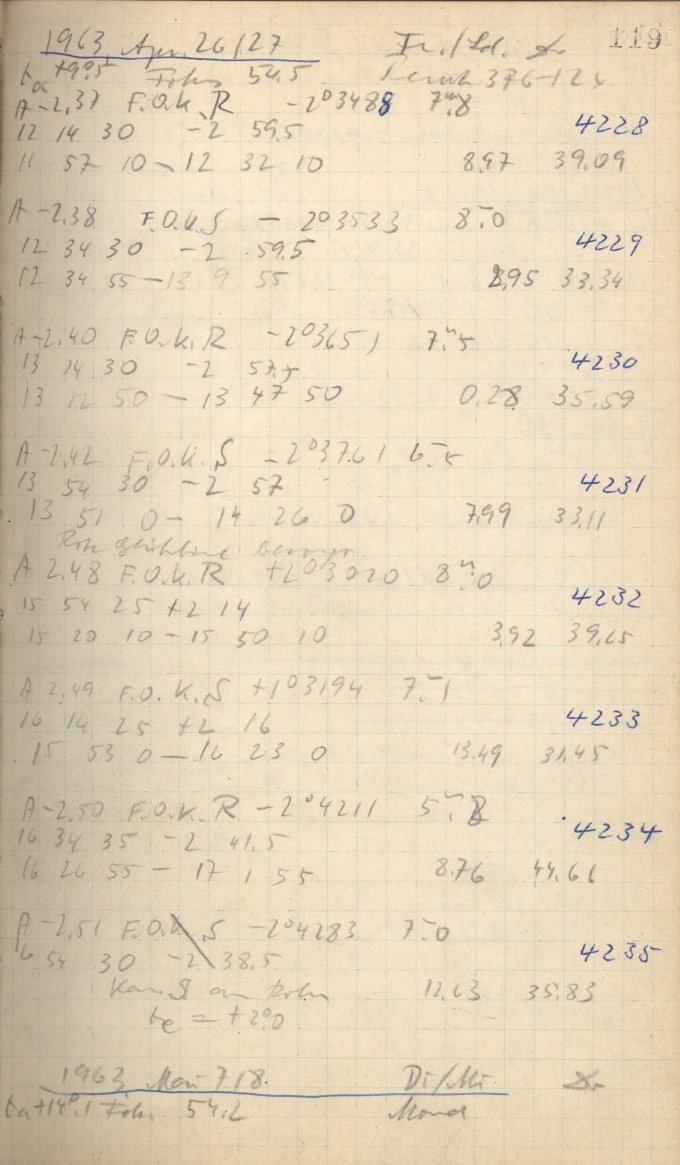 119
1963 Apr. 26/27 Fr./Sa.
+9.5 Fok. 54.5 376-12x
A-2.37 F.O.K. R -2°3488 7.8
12 14 30 -2 59.5 4228
11 57 10 - 12 32 10 8.97 39.09
A-2.38 F.O.K. S - 2°3533 8.0
12 34 30 -2 59.5 4229
12 34 55 - 13 9 55 8.95 33.34
A-2.40 F.O.K. R -2°3651 7.5
13 14 30 -2 57.5 4230
13 12 50 - 13 47 50 0.28 35.59
A-2.42 F.O.K. S -2°3761 6.5
13 54 30 -2 57 4231
13 51 0 - 14 26 0 7.99 33.11
Rote
A 2.48 F.O.K. R +2°3020 8.0
15 54 25 +2 14 4232
15 20 10 - 15 50 10 3.92 39.65
A 2.49 F.O.K. S +1°3194 7.1
16 14 25 +2 16 4233
15 53 0 - 16 23 0 13.49 31.45
A-2.50 F.O.K. R -2°4211 5.8
16 34 35 -2 41.5 4234
16 26 55 - 17 1 55 8.76 44.61
A-2.51 F.O.K. S -2°4283 7.0
16 54 30 -2 38.5 4235
12.63 35.83
te = +2°0
1963 Mai 7/8. Di/Mi.
ta +14°.1 Fok. 54.2 Mond